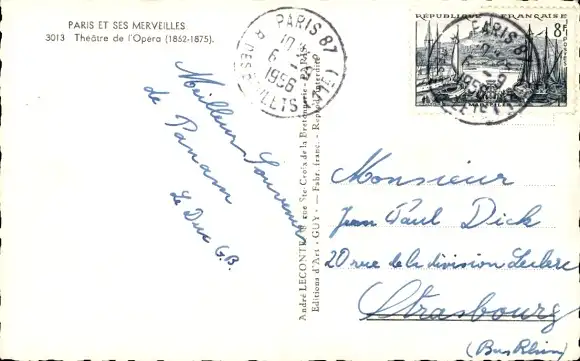 PARIS ET SES MERVEILLES
3013 Théâtre de l'Opéra (1862-1875).
PARIS 87
1956
RÉPUBLIQUE FRANÇAISE
8F
POSTES
PARIS 87
1956
Meilleur Souvenir
de Panam
Le Duc G.B.
André LECONTE, rue Ste-Croix-de-la-Bretonnerie - PARIS
Editions d'Art - GUY - Fabr. franc. - Reprod. interdite
Monsieur
Jean Paul Dick
20 rue de la division Leclerc
Strasbourg
(Bas Rhin)